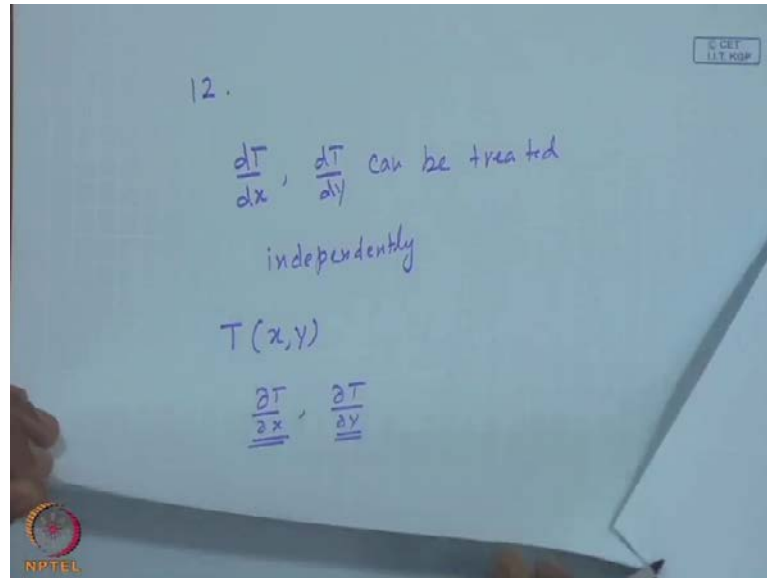 © CET
I.I.T. KGP
12.
dT/dx, dT/dy can be treated
independently
T(x,y)
∂T/∂x, ∂T/∂y
NPTEL